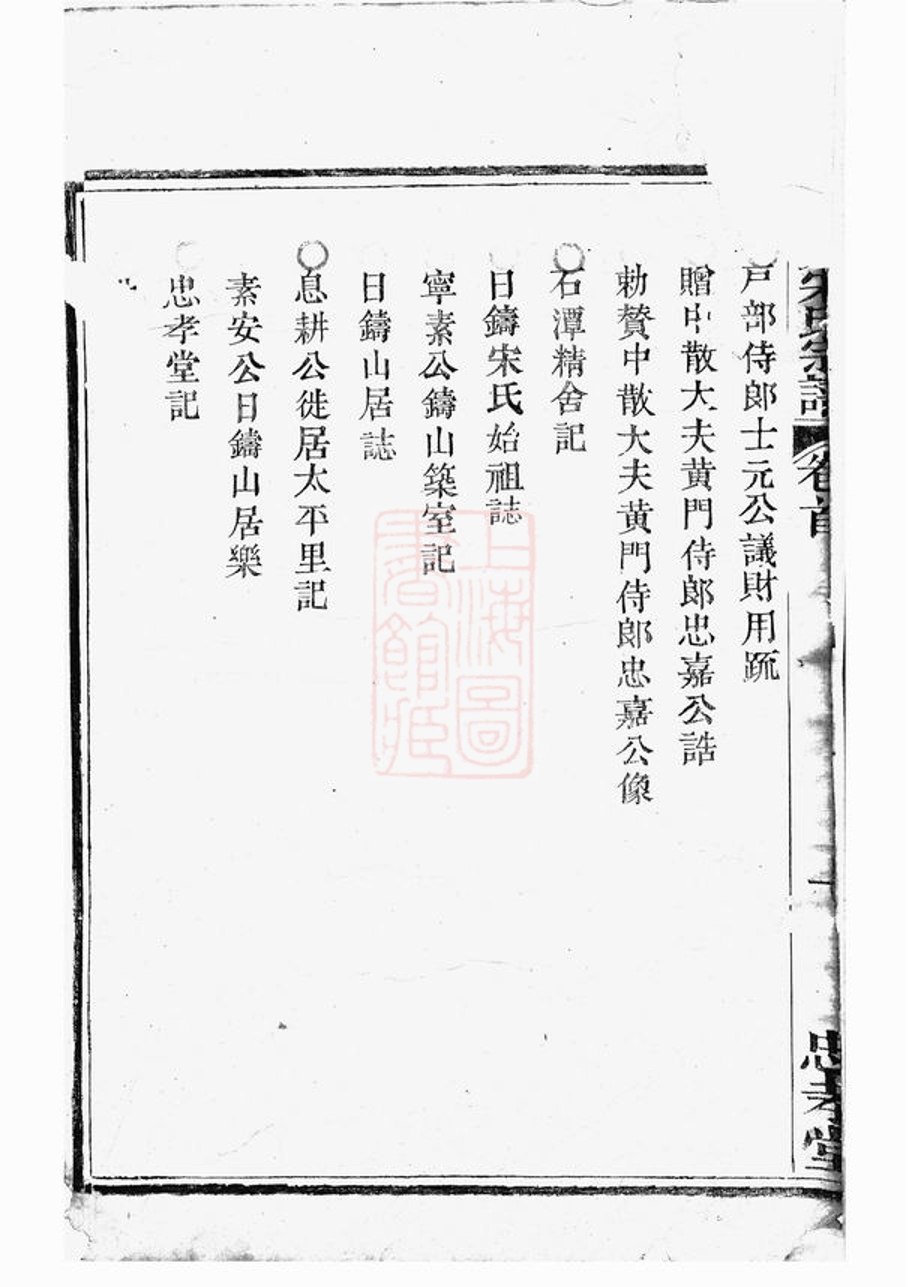 宋氏宗譜
卷首
忠孝堂
戸部侍郎士元公議財用䟽
贈中散大夫黄門侍郎忠嘉公誥
勅贊中散大夫黄門侍郎忠嘉公像
石潭精舍記
日鑄宋氏始祖誌
寧素公鑄山築室記
日鑄山居誌
息耕公徙居太平里記
素安公日鑄山居樂
忠孝堂記
上海圖書館藏